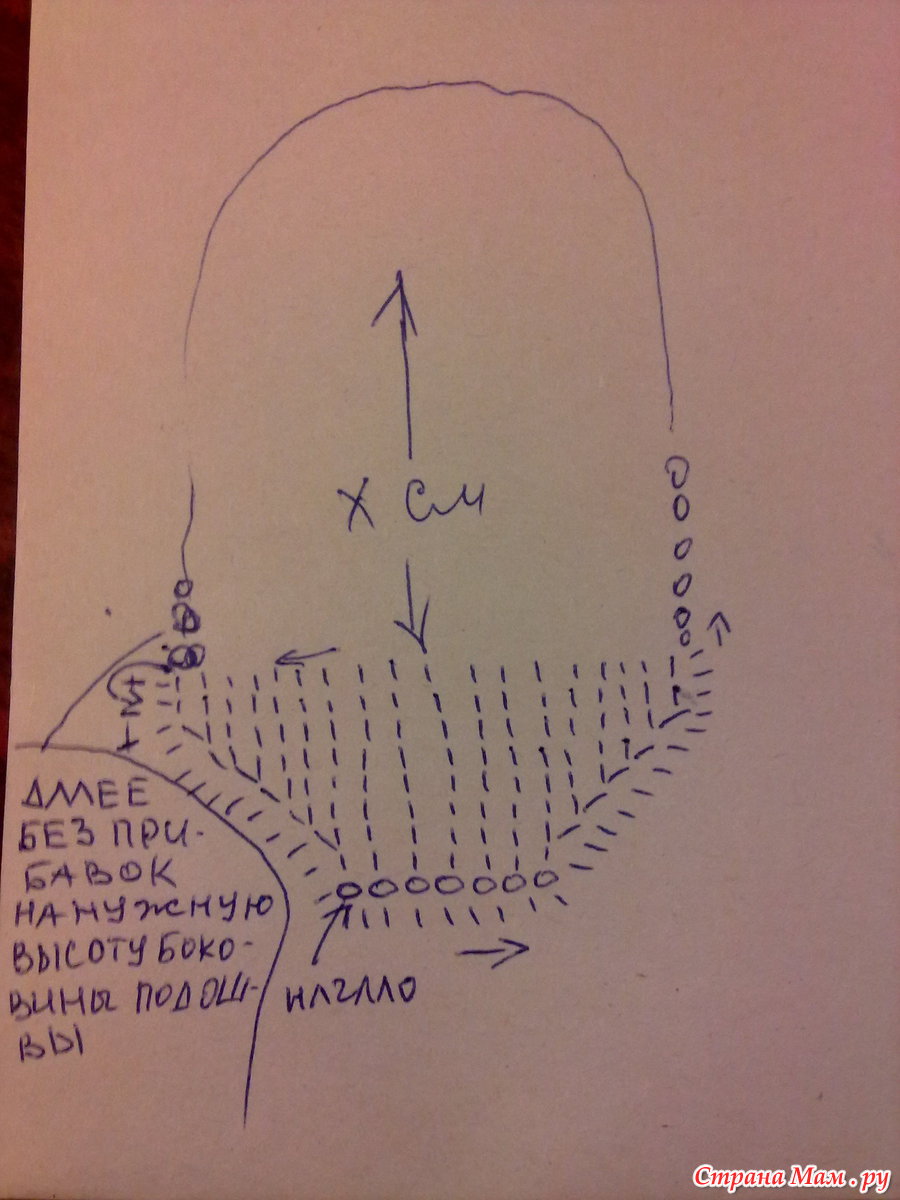 X см
+М
ДАЛЕЕ
БЕЗ ПРИ-
БАВОК
НА НУЖНУЮ
ВЫСОТУ БОКО-
ВИНЫ ПОДОШ-
ВЫ
НАЧАЛО
Страна Мам.ру